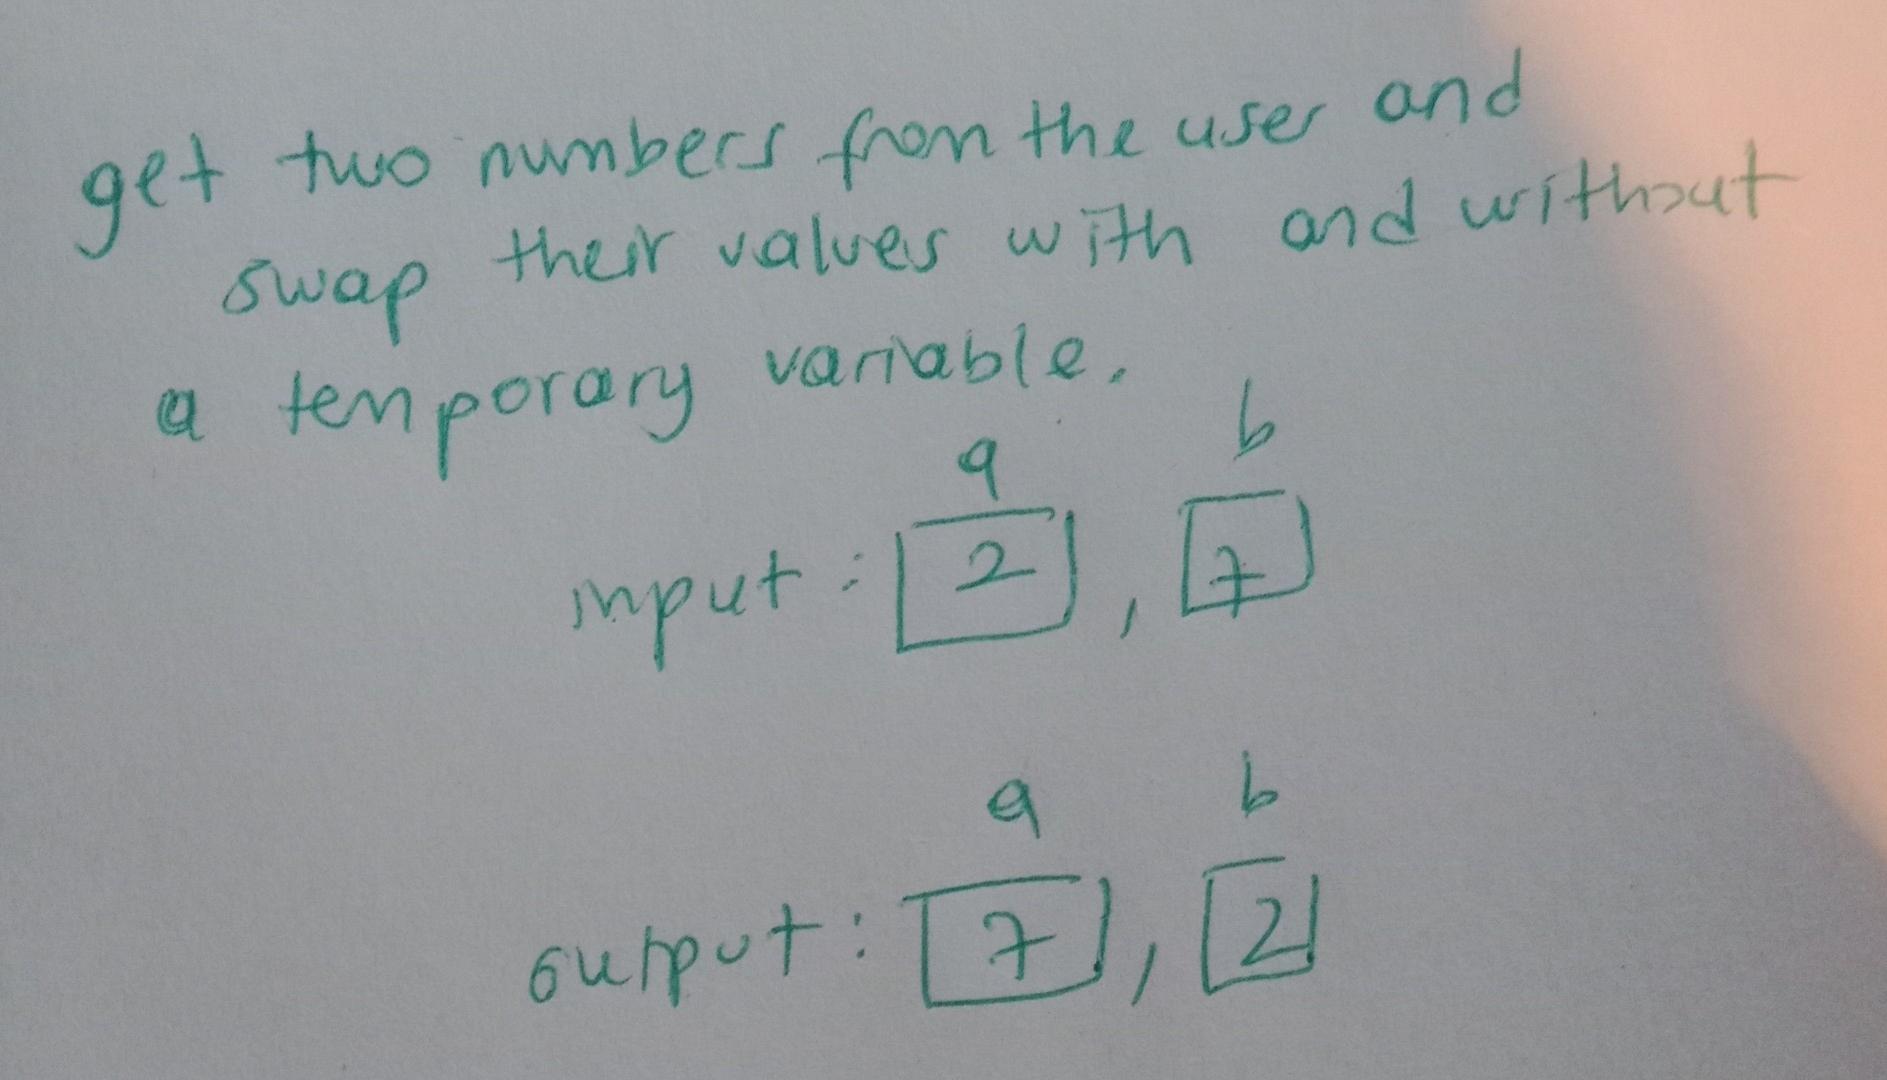 get two numbers from the user and
swap their values with and without
a temporary variable.
a b
input : 2 , 7
a b
output : 7 , 2